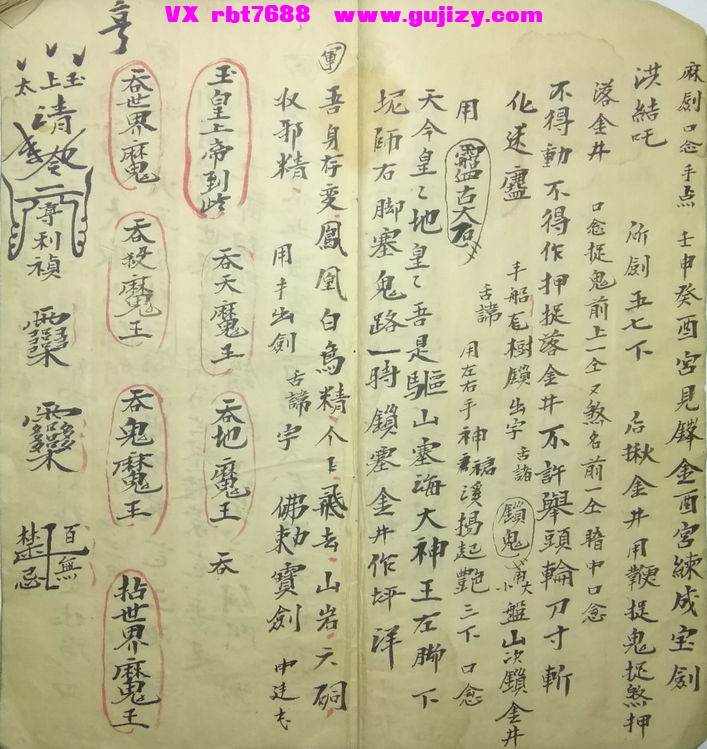 VX rbt7688 www.gujizy.com
麻剑口念 手点 壬申癸酉宮見鐸金酉宮練成宝剑
洪結吒 所剑五七下 后揪金井用鞭捉鬼捉煞押
落金井 口念捉鬼前上一仝又煞名前一仝暗中口念
不得動不得作押捉落金井不許舉頭輪刀寸斬
化速 手船右樹鎖出字 古諸 鎖鬼 大小盤山次鎖金井
用 古大石 舌諱 用左右手神裙溪揚起艷三下口念
天今皇〻地皇〻吾是驅山塞海大神王左脚下
坭师右脚塞鬼路一時鎖塞金井作坪洋
軍 吾身存变鳳凰白鳥精个上飛去山岩天硐
収邪精 用手出劍 舌諱字 佛勅寶劍 中建志
玉皇上帝到此 吞天魔王 吞地魔王 吞
吞世界魔 吞殺魔王 吞鬼魔王 拈世界魔王
亨
太上玉
清
二尊利禎
百無禁忌